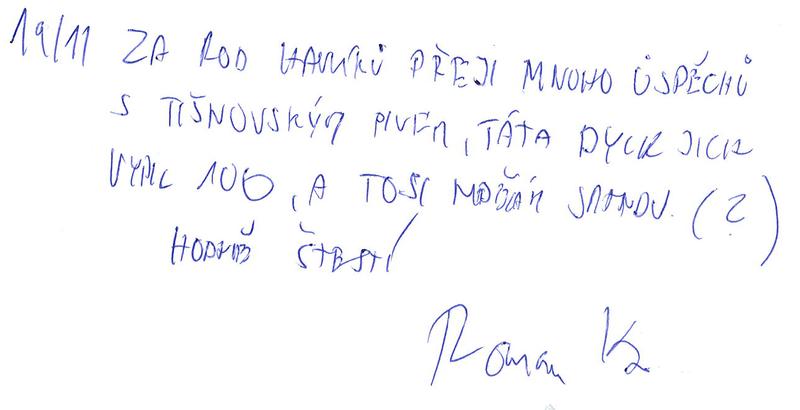 19/11 ZA ROD HAVÍŘŮ PŘEJI MNOHO ÚSPĚCHŮ
S TIŠNOVSKÝM PIVEM, TÁTA DYCK JICH
VYPIL 100, A TOSI MOŽÁ SRANDU. (?)
HODNĚ ŠTESTÍ
Roman K